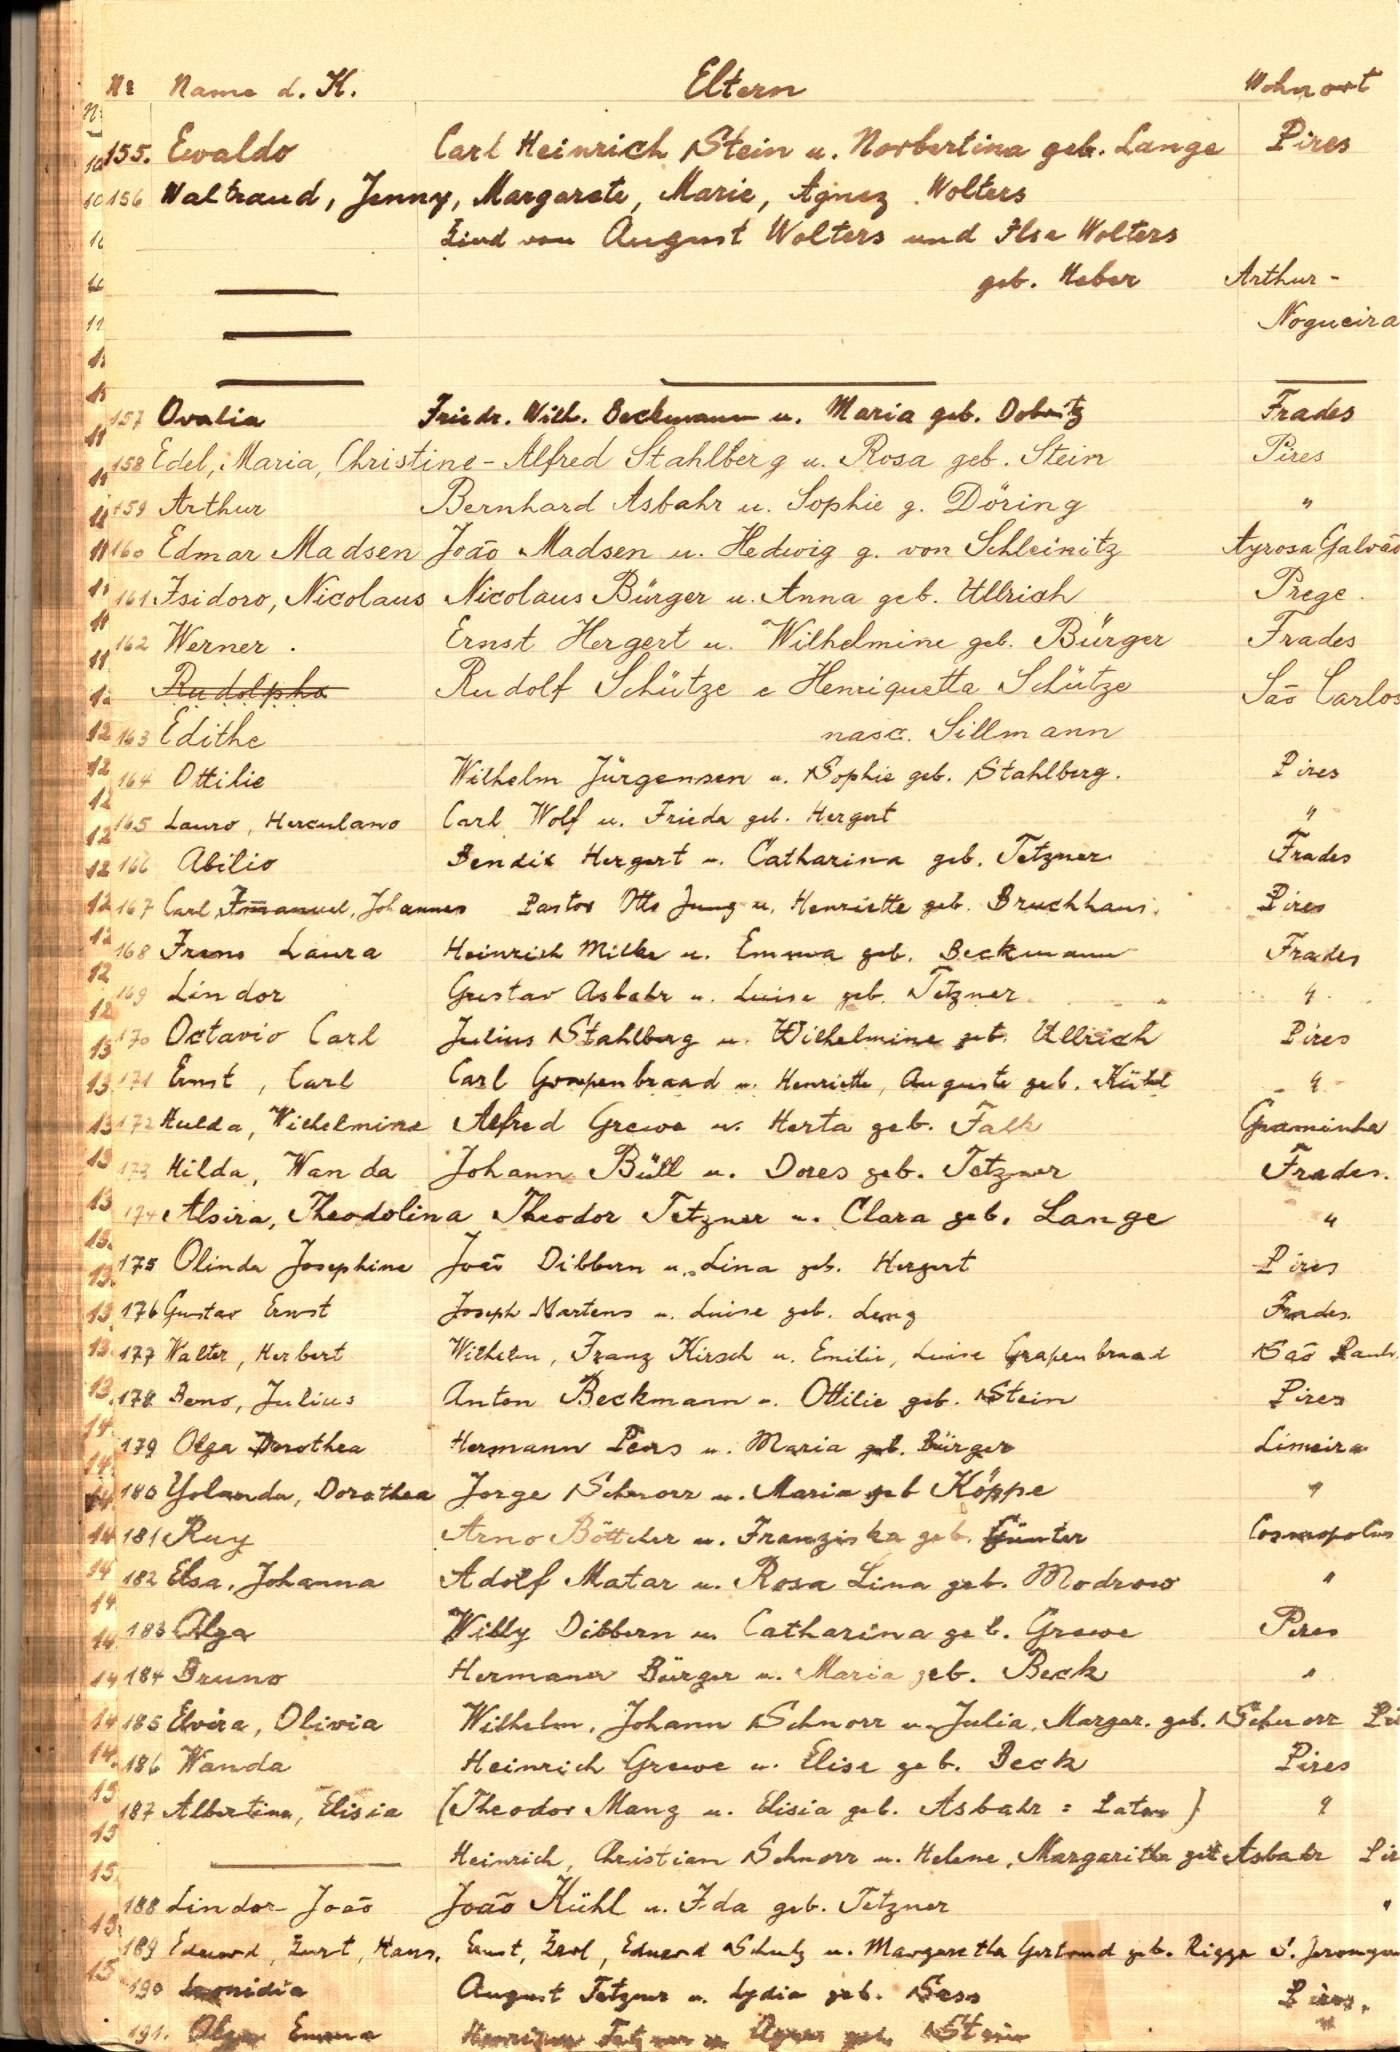 Nr Name d. K. Eltern Wohnort
155. Ewaldo Carl Heinrich Stein u. Norbertina geb. Lange Pires
156 Waltraud, Jenny, Margarete, Marie, Agnez Wolters
Kind von August Wolters und Ilse Wolters
geb. Heber Arthur-
Nogueira
157 Ovalia Friedr. Wilh. Beckmann u. Maria geb. Frades
158 Edel, Maria, Christine - Alfred Stahlberg u. Rosa geb. Stein Pires
159 Arthur Bernhard Asbahr u. Sophie g. Döring "
160 Edmar Madsen João Madsen u. Hedwig g. von Schleinitz Ayrosa Galvão
161 Isidoro, Nicolaus Nicolaus Bürger u. Anna geb. Ullrich Prege.
162 Werner. Ernst Hergert u. Wilhelmine geb. Bürger Frades
Rudolpho Rudolf Schütze e Henriquetta Schütze São Carlos
163 Edithe nasc. Sillmann
164 Ottilie Wilhelm Jürgensen u. Sophie geb. Stahlberg. Pires
165 Lauro, Herculano Carl Wolf u. Frieda geb. Hergert "
166 Abilio Bendix Hergert u. Catharina geb. Tetzner Frades
167 Carl, Immanuel, Johannes Pastor Otto Jung u. Henriette geb. Bruchhaus. Pires
168 Laura Heinrich Milke u. Emma geb. Beckmann Frades
169 Lindor Gustav Asbahr u. Luise geb. Tetzner "
170 Octavio Carl Julius Stahlberg u. Wilhelmine geb. Ullrich Pires
171 Ernst, Carl Carl u. Henriette, Auguste geb. "
172 Hulda, Wilhelmine Alfred Grewe u. Herta geb. Falk Graminha
173 Hilda, Wanda Johann Büll u. Dores geb. Tetzner Frades.
174 Alsira, Theodolina Theodor Tetzner u. Clara geb. Lange "
175 Olinda Josephine João Dibbern u. Lina geb. Hergert Pires
176 Gustav Ernst Joseph Martens u. Luise geb. Frades.
177 Walter, Herbert Wilhelm, Franz Kirsch u. Emilie, Luise Grapenbraad São
178 Beno, Julius Anton Beckmann u. Ottilie geb. Stein Pires
179 Olga Dorothea Hermann u. Maria geb. Bürger Limeira
180 Yolanda, Dorothea Jorge Schnorr u. Maria geb Köppe "
181 Ruy Arno Böttcher u. Franziska geb. Günter Cosmopolis
182 Elsa, Johanna Adolf Matar u. Rosa Lina geb. Modrow "
183 Olga Willy Dibbern u. Catharina geb. Grewe Pires
184 Bruno Hermann Bürger u. Maria geb. Beck "
185 Elvira, Olivia Wilhelm, Johann Schnorr u. Julia, Margar. geb. Schnorr
186 Wanda Heinrich Grewe u. Elise geb. Beck Pires
187 Albertina, Elisia (Theodor Manz u. Elisia geb. Asbahr = ) "
Heinrich, Christian Schnorr u. Helene, Margaritha geb Asbahr
188 Lindor João João Kühl u. Ida geb. Tetzner "
189 Eduard, Kurt, Hans, Ernst, Karl, Eduard Schulz u. Margaretha Gertrud geb.
190 Leonidia August Tetzner u. Lydia geb. Sass Pires.
191. Olga Emma u. Agnes geb. Stein "